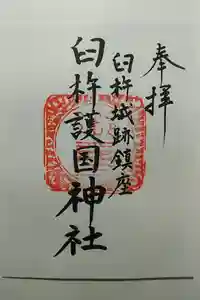 奉拝
臼杵城跡鎮座
臼杵護国神社